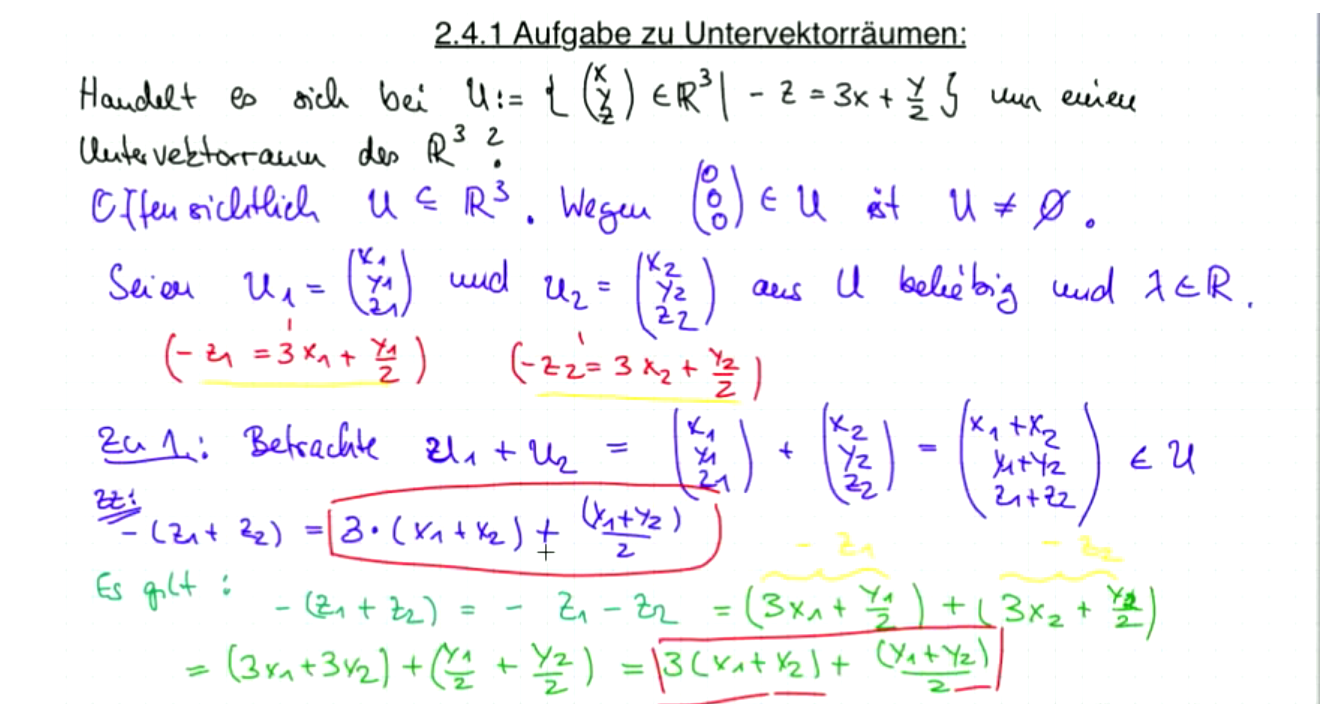 2.4.1 Aufgabe zu Untervektorräumen:
Handelt es sich bei U := { (x y z) ∈ ℝ³ | - z = 3x + y/2 } um einen
Untervektorraum des ℝ³ ?
Offensichtlich U ⊆ ℝ³. Wegen (0 0 0) ∈ U ist U ≠ ∅.
Seien u₁ = (x₁ y₁ z₁) und u₂ = (x₂ y₂ z₂) aus U beliebig und λ ∈ ℝ.
(- z₁ = 3x₁ + y₁/2) (- z₂ = 3x₂ + y₂/2)
Zu 1.: Betrachte u₁ + u₂ = (x₁ y₁ z₁) + (x₂ y₂ z₂) = (x₁+x₂ y₁+y₂ z₁+z₂) ∈ U
zz:
-(z₁ + z₂) = 3·(x₁ + x₂) + (y₁+y₂)/2
- z₁ - z₂
Es gilt: -(z₁ + z₂) = - z₁ - z₂ = (3x₁ + y₁/2) + (3x₂ + y₂/2)
= (3x₁+3x₂) + (y₁/2 + y₂/2) = 3(x₁+x₂) + (y₁+y₂)/2